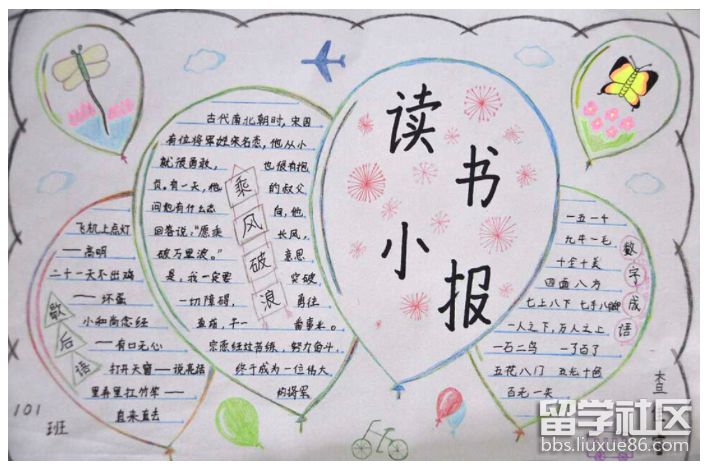 读书小报
古代南北朝时,宋国
有位将军姓宗名悫,他从小
就很勇敢, 也很有抱
负。有一天,他 的叔父
问他有什么志 向,他
回答说:“愿乘 长风,
破万里浪。” 意思
是,我一定要 突破
一切障碍, 勇往
直前,干一 番事业。
宗悫经过苦练,努力奋斗,
终于成为一位伟大
的将军
乘风破浪
飞机上点灯
——高明
二十一天不出鸡
——坏蛋
小和尚念经
——有口无心
打开天窗——说亮话
里弄里扛竹竿——
直来直去
歇后语
一五一十
九牛一毛
十全十美
四面八方
七上八下 七手八脚
一人之下,万人之上
一石二鸟 一了百了
五花八门 五光十色
百无一失
数字成语
101
班
留学社区
bbs.liuxue86.com